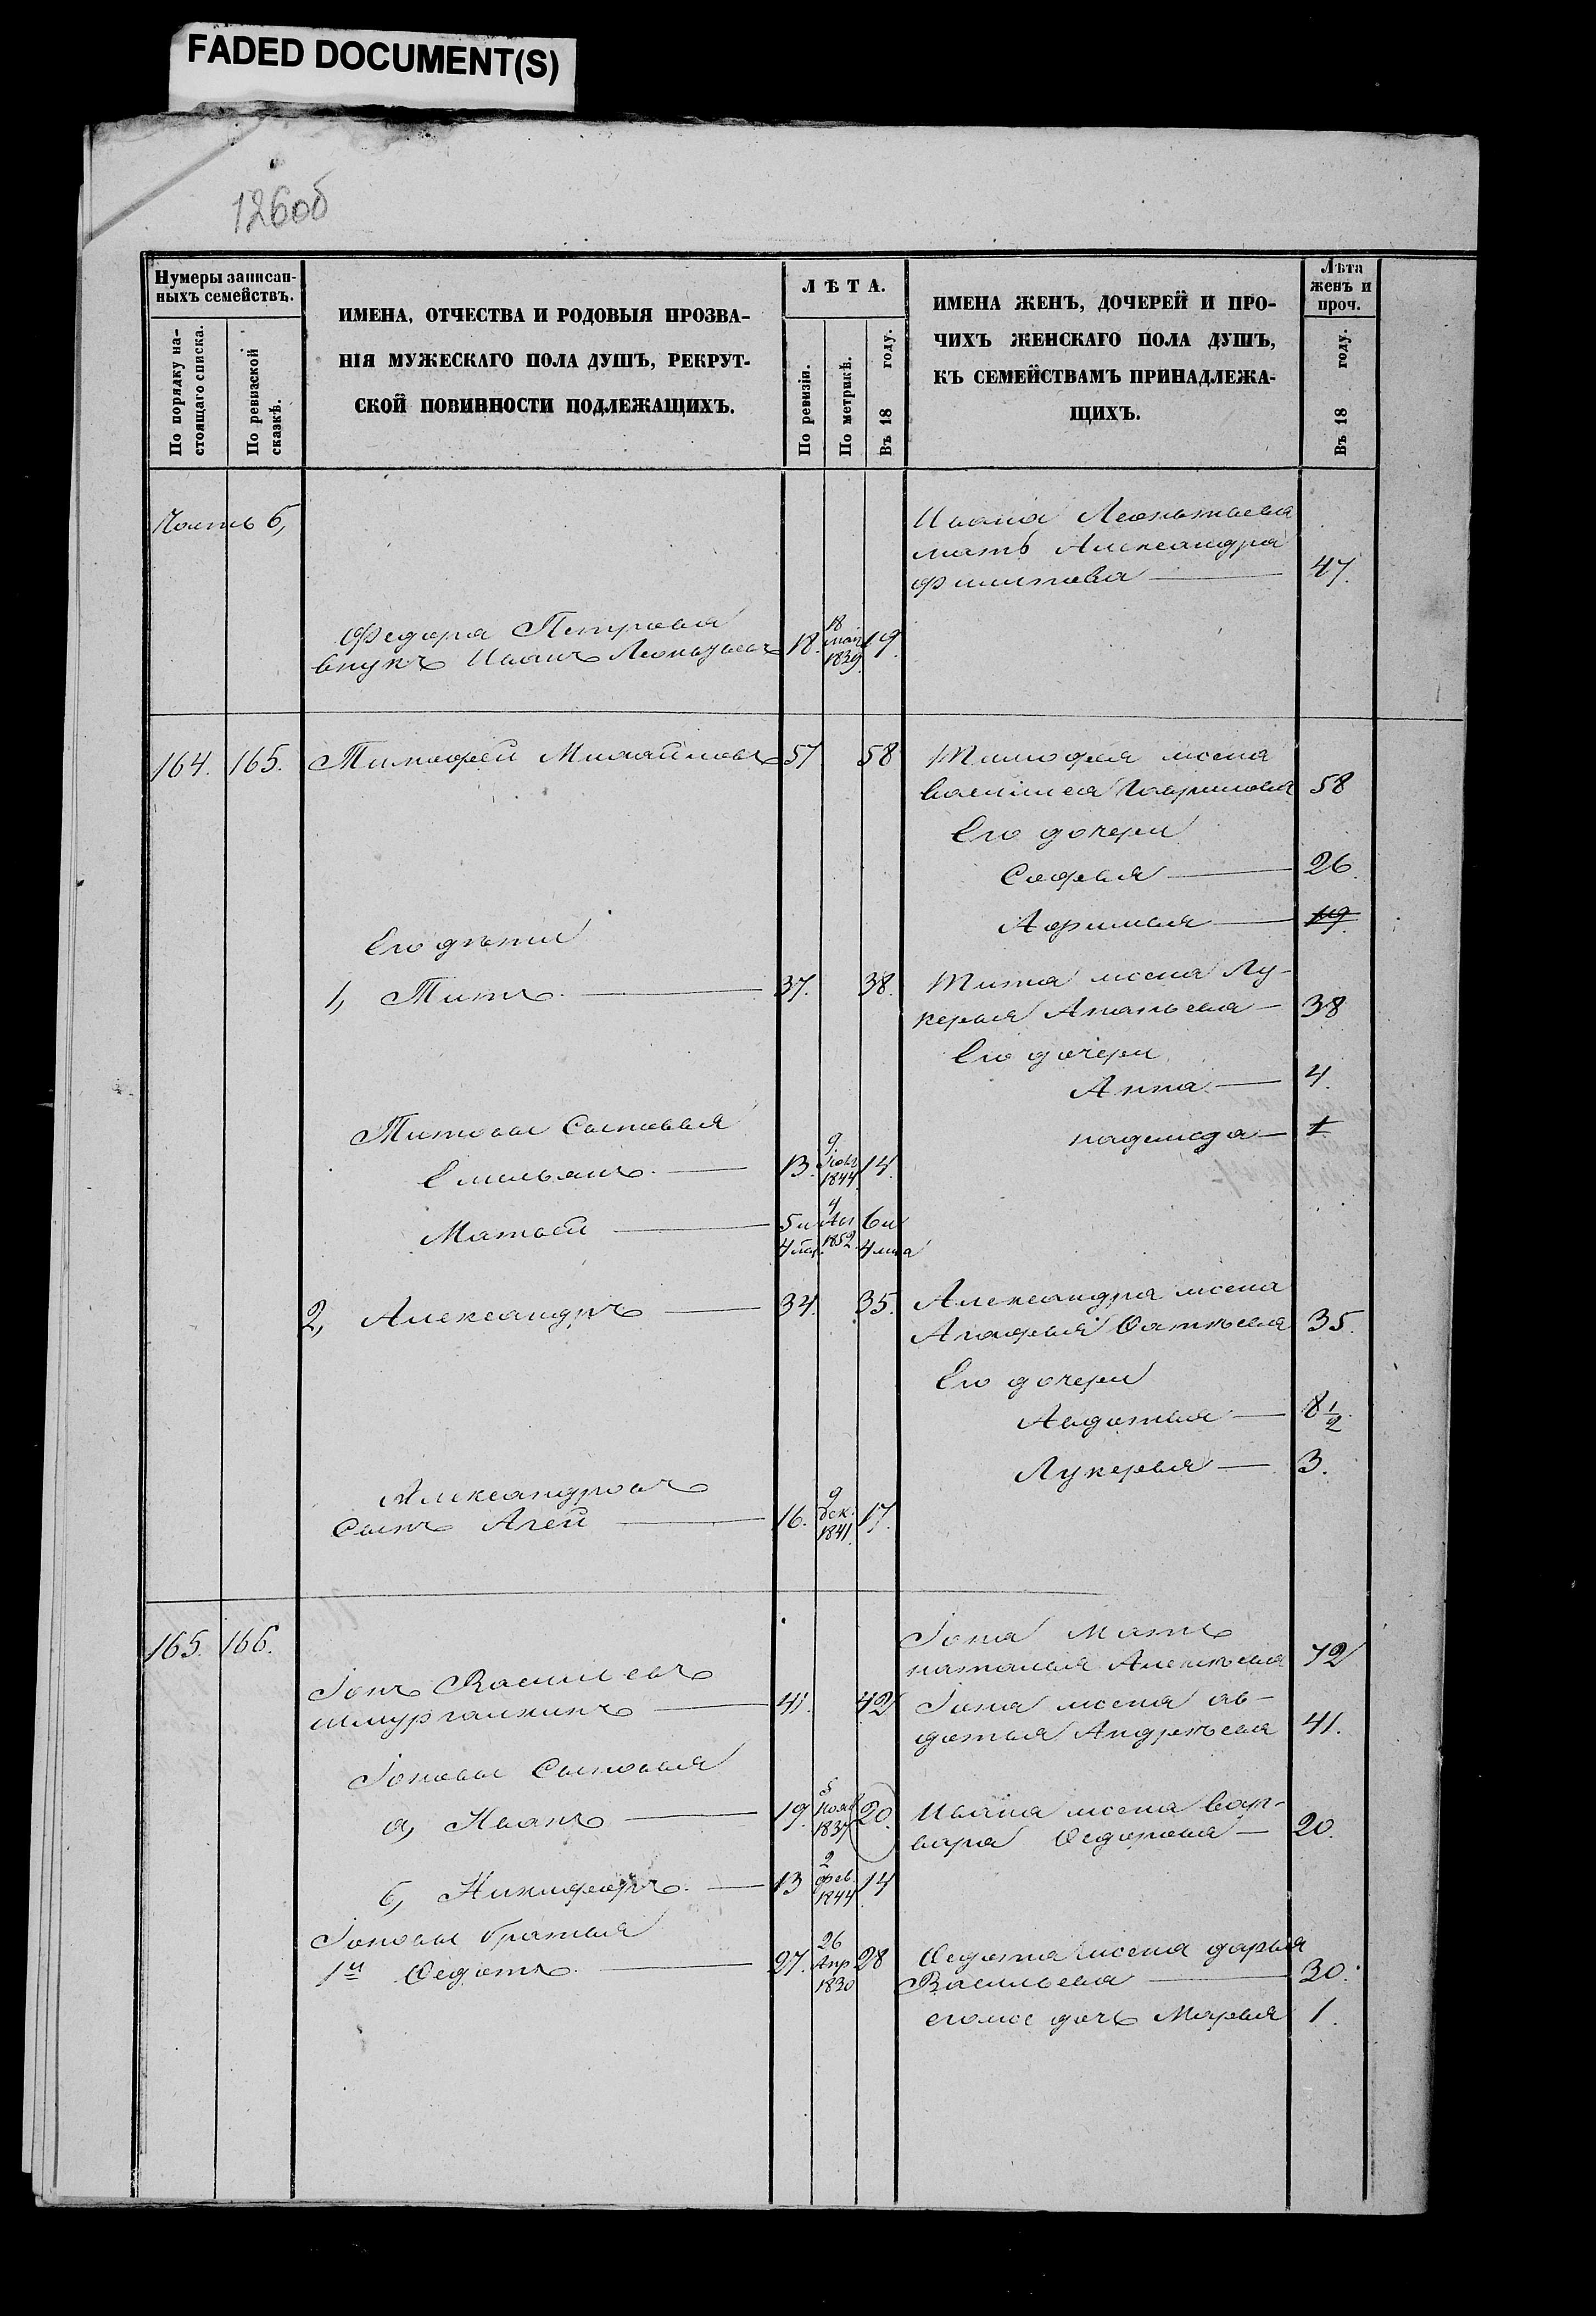 FADED DOCUMENT(S)
126об
Нумеры записан-
ныхъ семействъ.
По порядку на-
стоящаго списка.
По ревизской
сказкѣ.
ИМЕНА, ОТЧЕСТВА И РОДОВЫЯ ПРОЗВА-
НІЯ МУЖЕСКАГО ПОЛА ДУШЪ, РЕКРУТ-
СКОЙ ПОВИННОСТИ ПОДЛЕЖАЩИХЪ.
ЛѢТА.
По ревизіи.
По метрикѣ.
Въ 18 году.
ИМЕНА ЖЕНЪ, ДОЧЕРЕЙ И ПРО-
ЧИХЪ ЖЕНСКАГО ПОЛА ДУШЪ,
КЪ СЕМЕЙСТВАМЪ ПРИНАДЛЕЖА-
ЩИХЪ.
Лѣта
женъ и
проч.
Въ 18 году.
6,
Ивана Леонтьева
мать Александра
Филипова 47.
Федора Петрова
внукъ Иванъ Леонтьевъ 18. 18 мая 1839 19.
164. 165. Тимофей Михайловъ 57 58
Тимофея жена
Василиса Гаврилова 58
Его дочери
Софья 26
Афимья 19
Его дѣти
1, Титъ 37. 38.
Тита жена Лу-
керья Ананьева 38
Его дочери
Анна 4.
надежда 1
Титовы Сыновья
Емельянъ 13. 9 1844 14.
Матвей 5 и 4 1852 6 и
2, Александръ 34. 35.
Александра жена
Агафья Фатѣева 35.
Его дочери
Авдотья 8 1/2
Лукерья 3.
Александровъ
Сынъ Агей 16. 9 Дек. 1841. 17.
165. 166.
Іона Мать
наталья Алексѣева 72
Іонъ Васильевъ
Шмургалкинъ 41. 42
Іона жена ав-
дотья Андрѣева 41.
Іоновы Сыновья
а, Иванъ 19. 5 Нояб 1837 20.
Ивана жена вар-
вара Федорова 20.
б, Никифоръ 13 2 фев. 1844 14
Іоновы братья
1й Федотъ 27. 26 Апр 1830 28
Федота жена дарья
Васильева 30.
егоже дочь Марья 1.